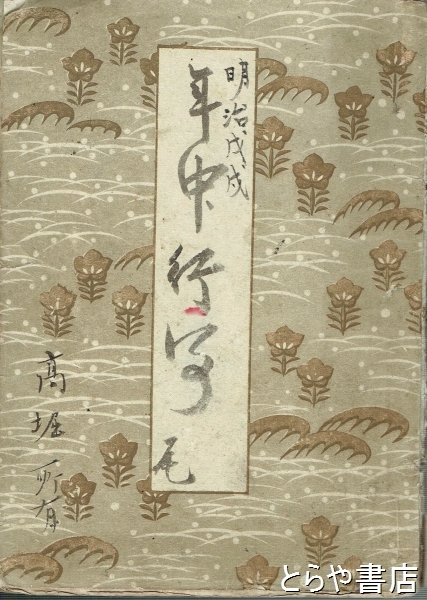 明治戊戌
年中行事
尾
高堀所有
とらや書店